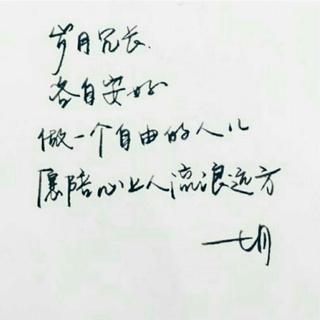 岁月兄长
各自安好
做一个自由的人儿
愿陪心上人流浪远方
七月